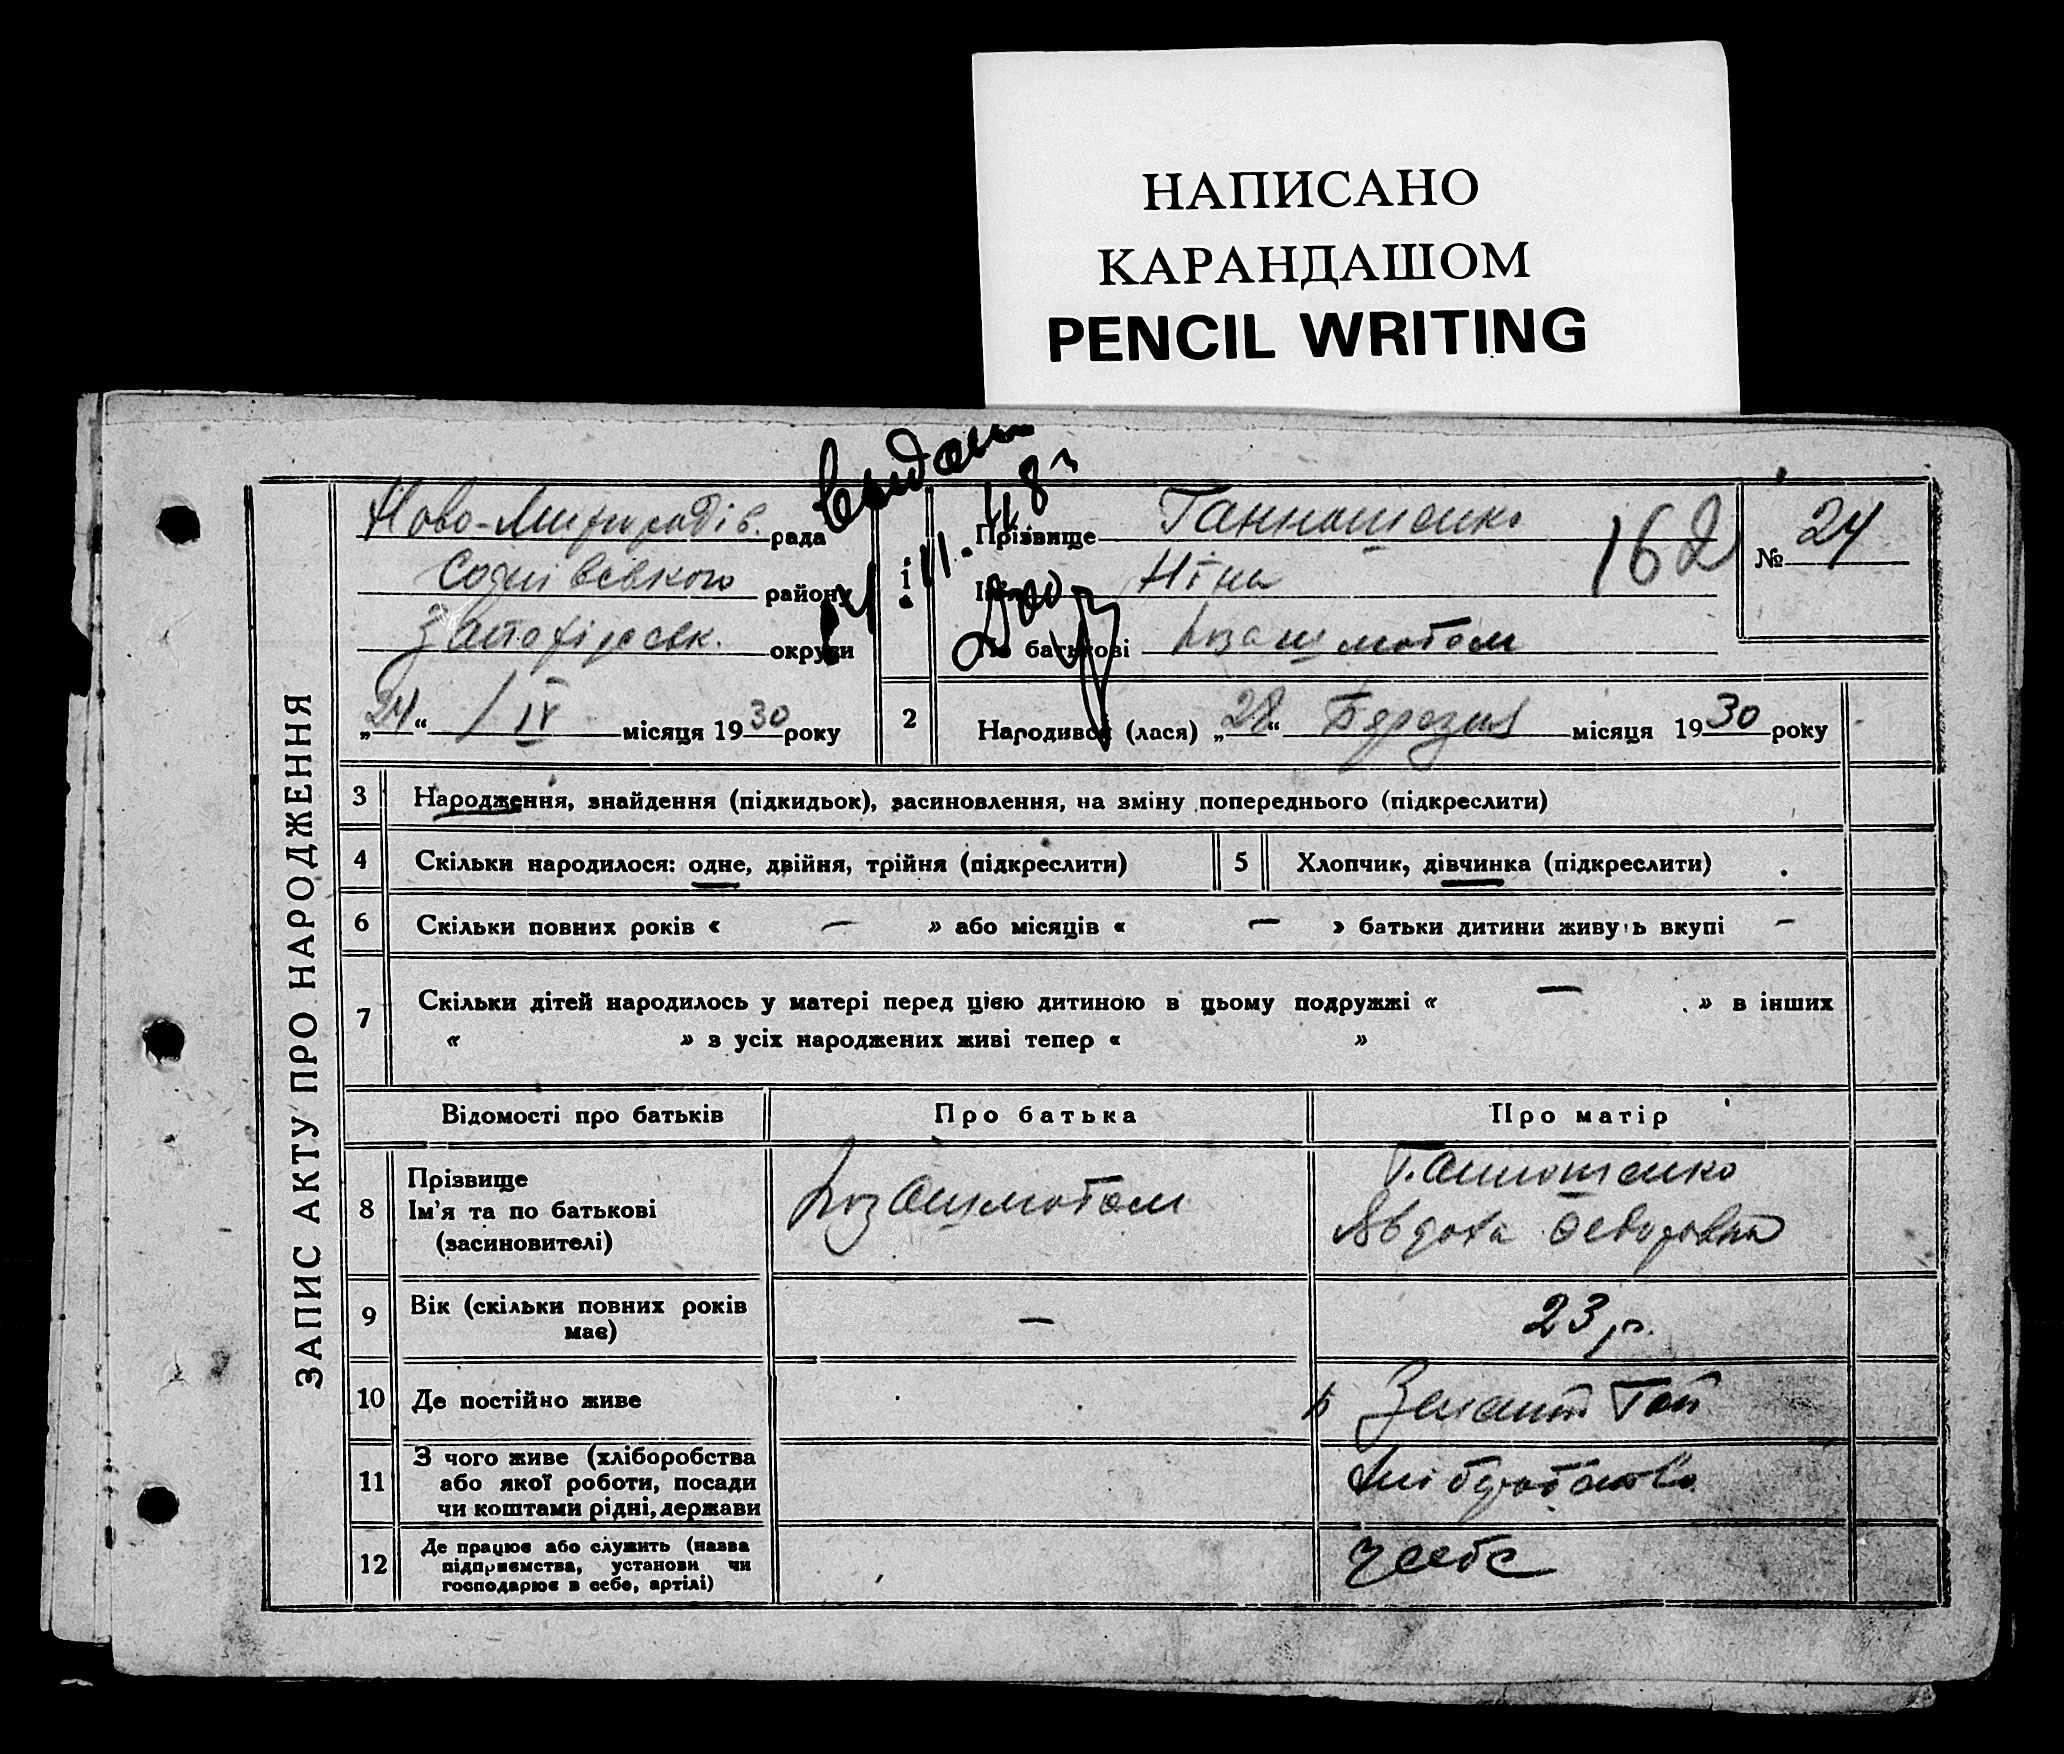 НАПИСАНО
КАРАНДАШОМ
PENCIL WRITING
ЗАПИС АКТУ ПРО НАРОДЖЕННЯ
рада
району
Запоріжськ. округи
„24“ / IV місяця 1930 року
1
Прізвище Ганношенко
162
Ім'я Ніна
По батькові позашлюбом
№ 24
2 Народився (лася) „28“ Березня місяця 1930 року
3 Народження, знайдення (підкидьок), засиновлення, на зміну попереднього (підкреслити)
4 Скільки народилося: одне, двійня, трійня (підкреслити)
5 Хлопчик, дівчинка (підкреслити)
6 Скільки повних років « — » або місяців « — » батьки дитини живуть вкупі —
7 Скільки дітей народилось у матері перед цією дитиною в цьому подружжі « — » в інших
« » з усіх народжених живі тепер « »
Відомості про батьків
Про батька
Про матір
8 Прізвище
Ім'я та по батькові
(засиновителі)
позашлюбом
Ганношенко
Явдоха Федоровна
9 Вік (скільки повних років
має)
—
23 р.
10 Де постійно живе
Гай
11 З чого живе (хліборобства
або якої роботи, посади
чи коштами рідні, держави
хліборобство
12 Де працює або служить (назва
підприємства, установи чи
господарює в себе, артілі)
у себе